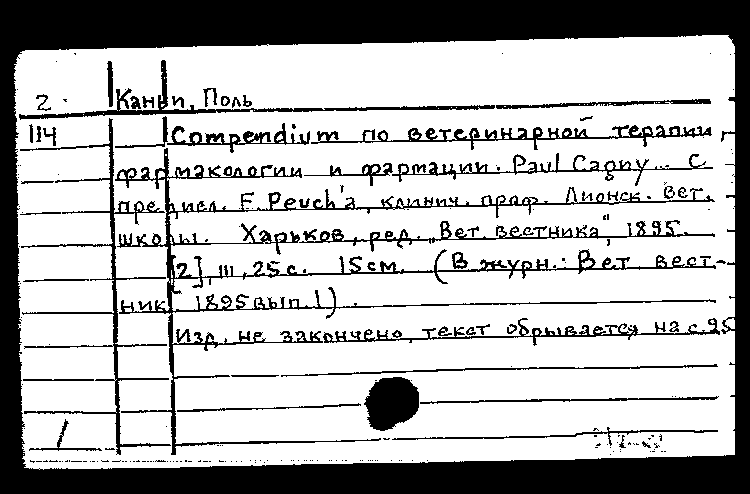 2. Каньи, Поль
114 Compendium по ветеринарной терапии,
фармакологии и фармации. Paul Cagny... С
предисл. F. Peuch'a, клинич. проф. Лионск. вет.
школы. Харьков, ред. „Вет. вестника", 1895.
[2], III, 25 с. 15 см. (В журн.: Вет вест-
ник. 1895 вып. 1).
Изд. не закончено, текст обрывается на с. 25
/